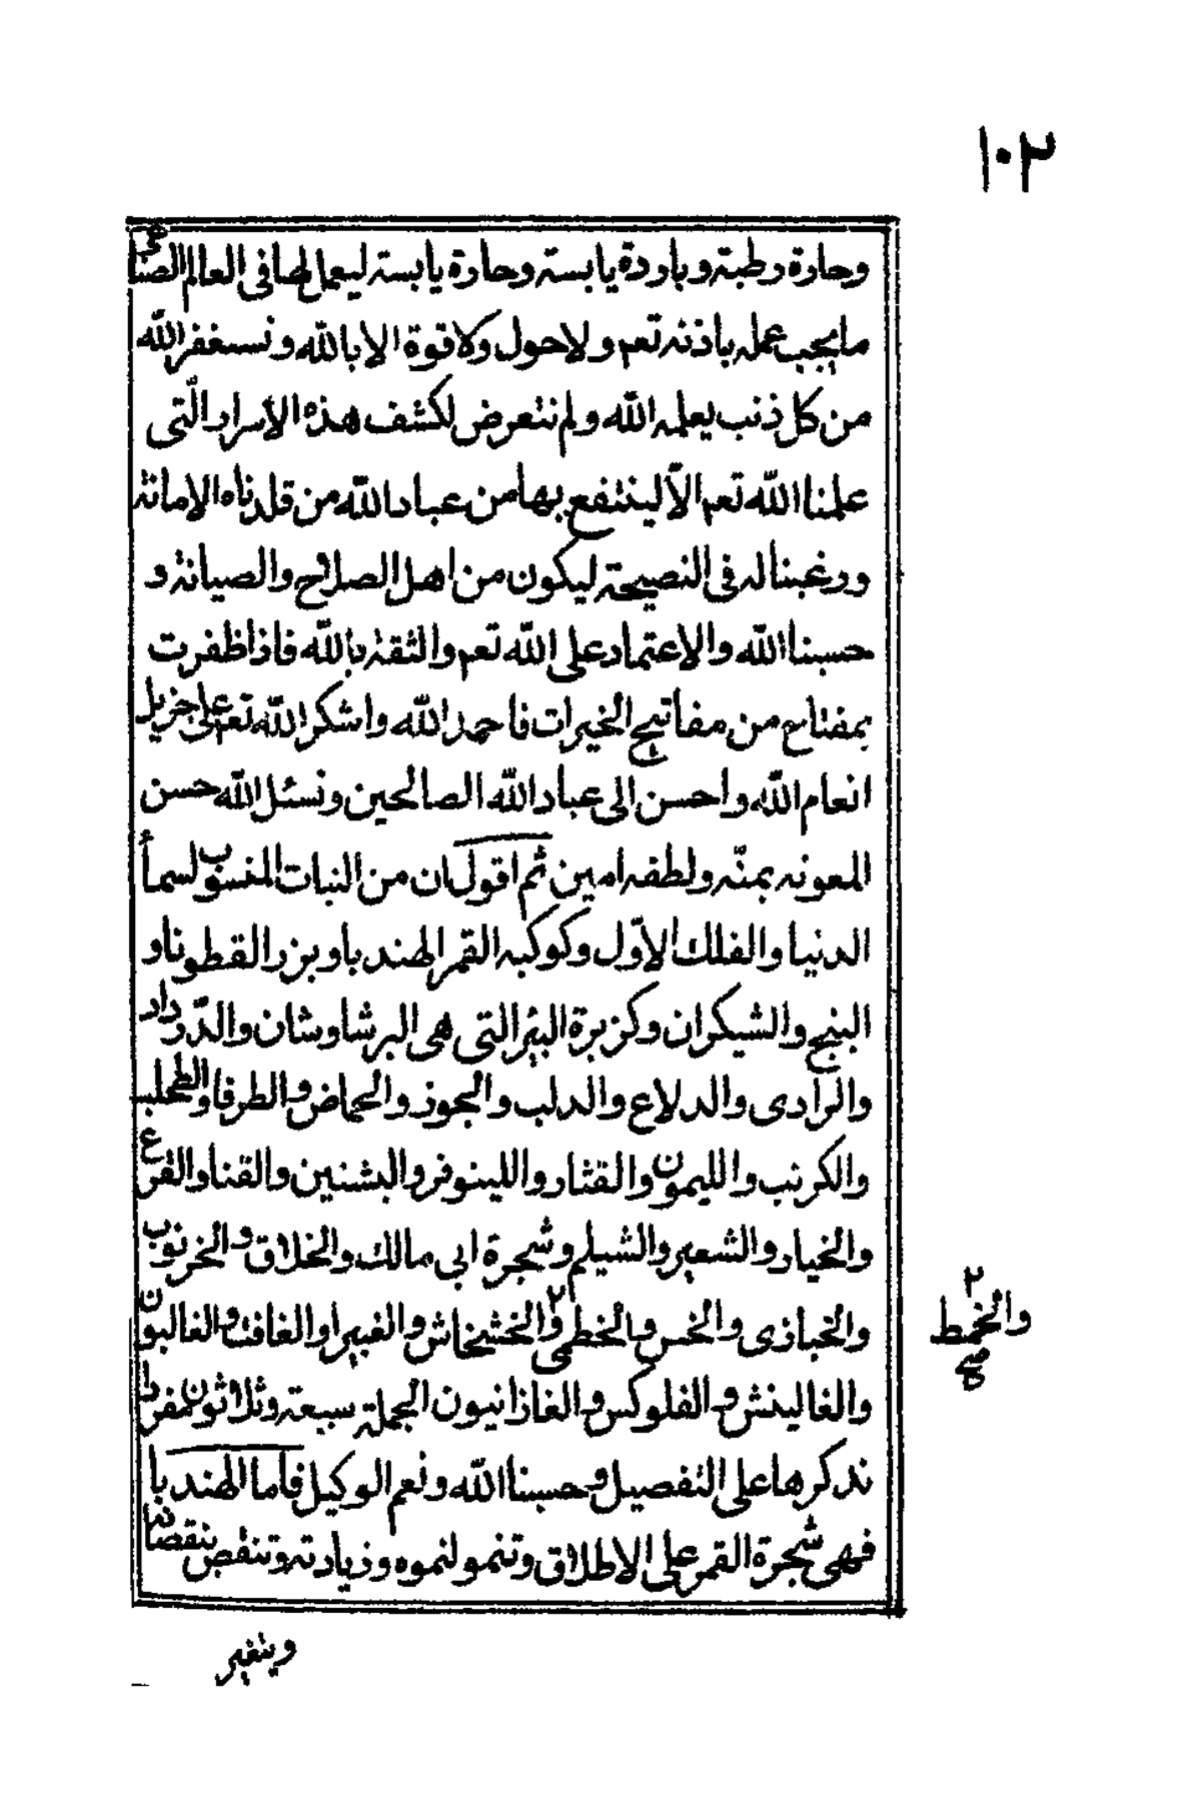 ١٠٢
وحارة رطبة وباردة يابسة وحارة يابسة ليعمل لها فى العالم الصناعى
ما يجب عمله باذنه تعم ولا حول ولا قوة الا بالله ونستغفر الله
من كل ذنب يعلمه الله ولم نتعرض لكشف هذه الاسرار الّتى
علمنا الله تعم الّا لينتفع بها من عباد الله من قلدناه الامانة
ورغبنا له فى النصيحة ليكون من اهل الصلاح والصيانة و
حسبنا الله والاعتماد على الله تعم والثقة بالله فاذا ظفرت
بمفتاح من مفاتيح الخيرات فاحمد الله واشكر الله تعم على جزيل
انعام الله واحسن الى عباد الله الصالحين ونسئل الله حسن
المعونه بمنّه ولطفه امين ثم اقول ان من النبات المنسوب لسمأ
الدنيا والفلك الاوّل وكوكبه القمر الهندبا وبزر القطونا و
البنج والشيكران وكزبرة البئر التى هى البرشاوشان والدّردار
والرادى والدلاع والدلب والجوز والحماض والطرفا والطحلب
والكرنب والليمون والقثار واللينوفر والبشنين والقنا والقرع
والخيار والشعير والشيلم وشجرة ابى مالك والخلاق والخرنوب
والخبازى والخس والخطمى ٢ والخشخاش والغبيرا والغافت والغالبون
والغالينش والفلوكس والغازانيون الجملة سبعة وثلاثون مفردا
نذكرها على التفصيل وحسبنا الله ونعم الوكيل فاما الهندبا
فهى شجرة القمر على الاطلاق وتنمو لنموه وزيادته وتنقص بنقصانه
٢
والخمط
صح
ويتغير